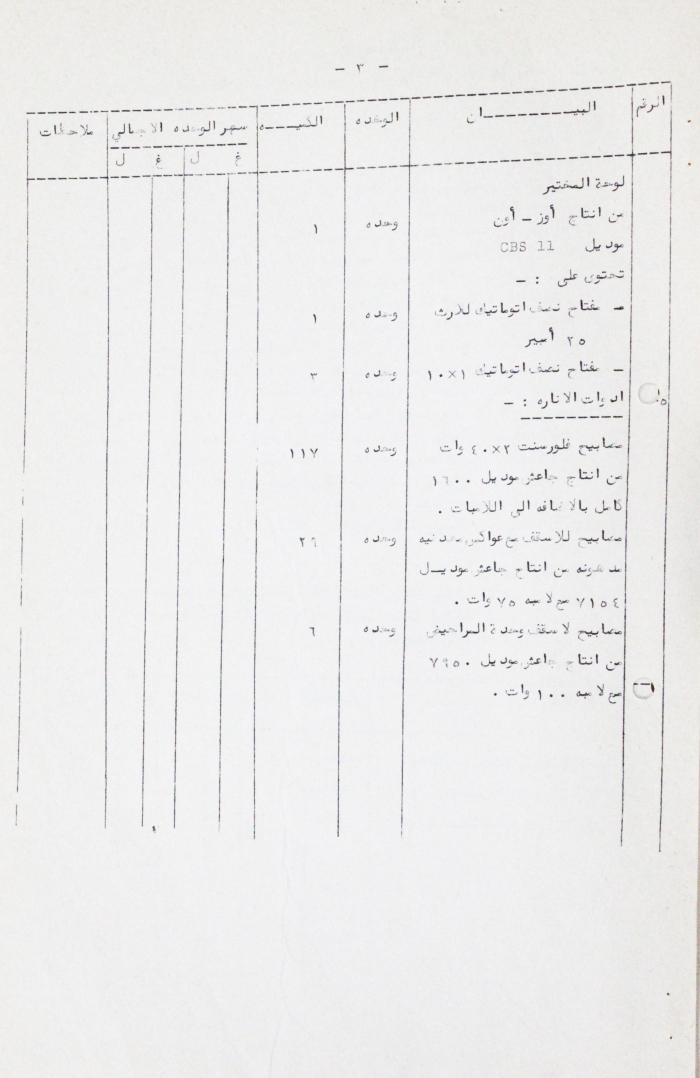 - ٣ -
الرقم البيـــــــان الوحده الكميـــه سعر الوحده الاجمالي ملاحظات
غ ل غ ل
لوحة المختبر
من انتاج أوز - أون وحده ١
موديل CBS 11
تحتوى على : -
- مفتاح نصف اتوماتيك للارث وحده ١
٢٥ أمبير
- مفتاح نصف اتوماتيك ١×١٠ وحده ٣
٥ ادوات الاناره : -
مصابيح فلورسنت ٢×٤٠ وات وحده ١١٧
من انتاج جاعثر موديل ١٦٠٠
كامل بالاضافه الى اللامبات .
مصابيح للاسقف مع عواكس معدنيه وحده ٢٩
مدهونه من انتاج جاعثر موديــل
٧١٥٤ مع لامبه ٧٥ وات .
مصابيح لاسقف وحدة المراحيض وحده ٦
من انتاج جاعثر موديل ٧٩٥٠
مع لامبه ١٠٠ وات .